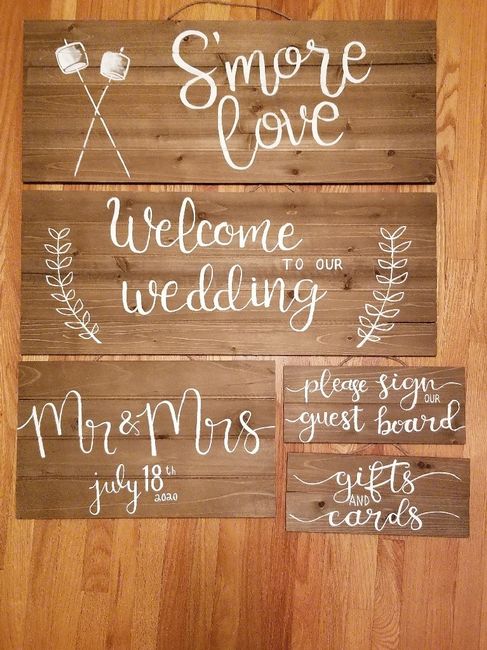 S'more
love
Welcome
TO OUR
wedding
Mr & Mrs
july 18th
2020
please sign
OUR
guest board
gifts
AND
cards